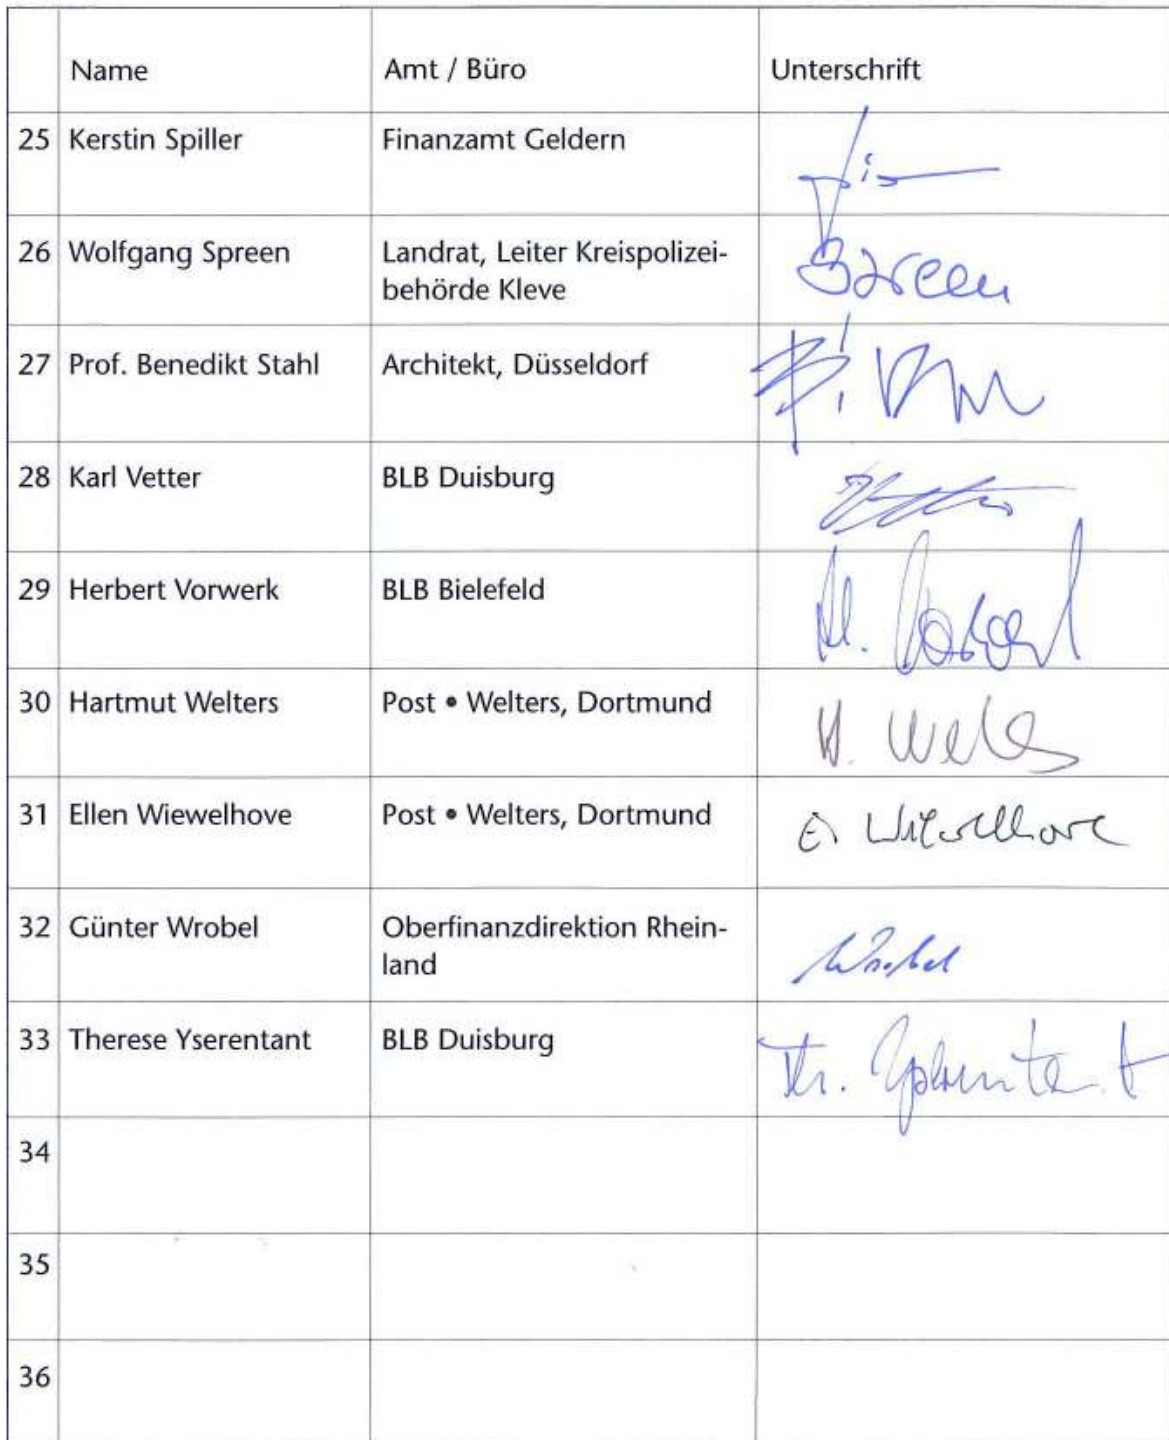 Name Amt / Büro Unterschrift
25 Kerstin Spiller Finanzamt Geldern
26 Wolfgang Spreen Landrat, Leiter Kreispolizei-
behörde Kleve Spreen
27 Prof. Benedikt Stahl Architekt, Düsseldorf
28 Karl Vetter BLB Duisburg
29 Herbert Vorwerk BLB Bielefeld
30 Hartmut Welters Post • Welters, Dortmund H. Welters
31 Ellen Wiewelhove Post • Welters, Dortmund E. Wiewelhove
32 Günter Wrobel Oberfinanzdirektion Rhein-
land Wrobel
33 Therese Yserentant BLB Duisburg Th. Yserentant
34
35
36